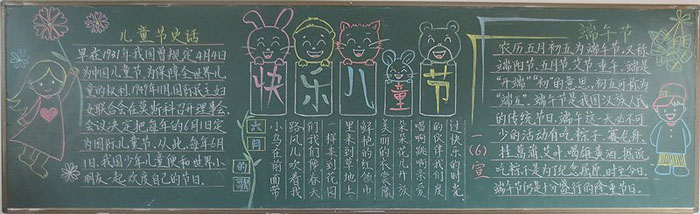 儿童节史话
早在1931年我国曾规定4月4日
为中国儿童节,为保障全世界儿
童的权利,1949年11月,国际民主妇
女联合会在莫斯科召开理事会,
会议决定把每年的6月1日定
为国际儿童节。从此,每年6月
1日,我国少年儿童便和世界小
朋友一起欢度自己的节日。
快乐儿童节
六月的歌
小鸟在前面带
路风儿吹着我
们我们像春天
一样来到花园
里来到草地上
鲜艳的红领巾
美丽的衣裳像
朵朵花儿开放
唱啊跳啊亲爱
的伙伴我们度
过快乐的时光
一(6)宣
端午节
农历五月初五为端午节,又称
端阳节、五月节、艾节、重午。端是
"开端""初"的意思,初五可称为
"端五"。端午节是我国汉族人民
的传统节日。端午这一天必不可
少的活动有吃粽子、赛龙舟、
挂菖蒲艾叶、喝雄黄酒。据说
吃粽子是为了纪念屈原,时至今日,
端午节仍是十分盛行的隆重节日。